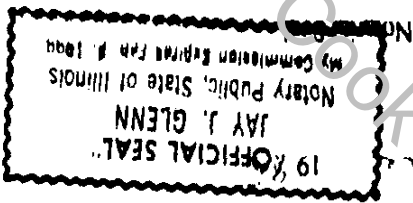 "OFFICIAL SEAL"
JAY J. GLENN
Notary Public, State of Illinois
My Commission Expires Feb
19
Cook